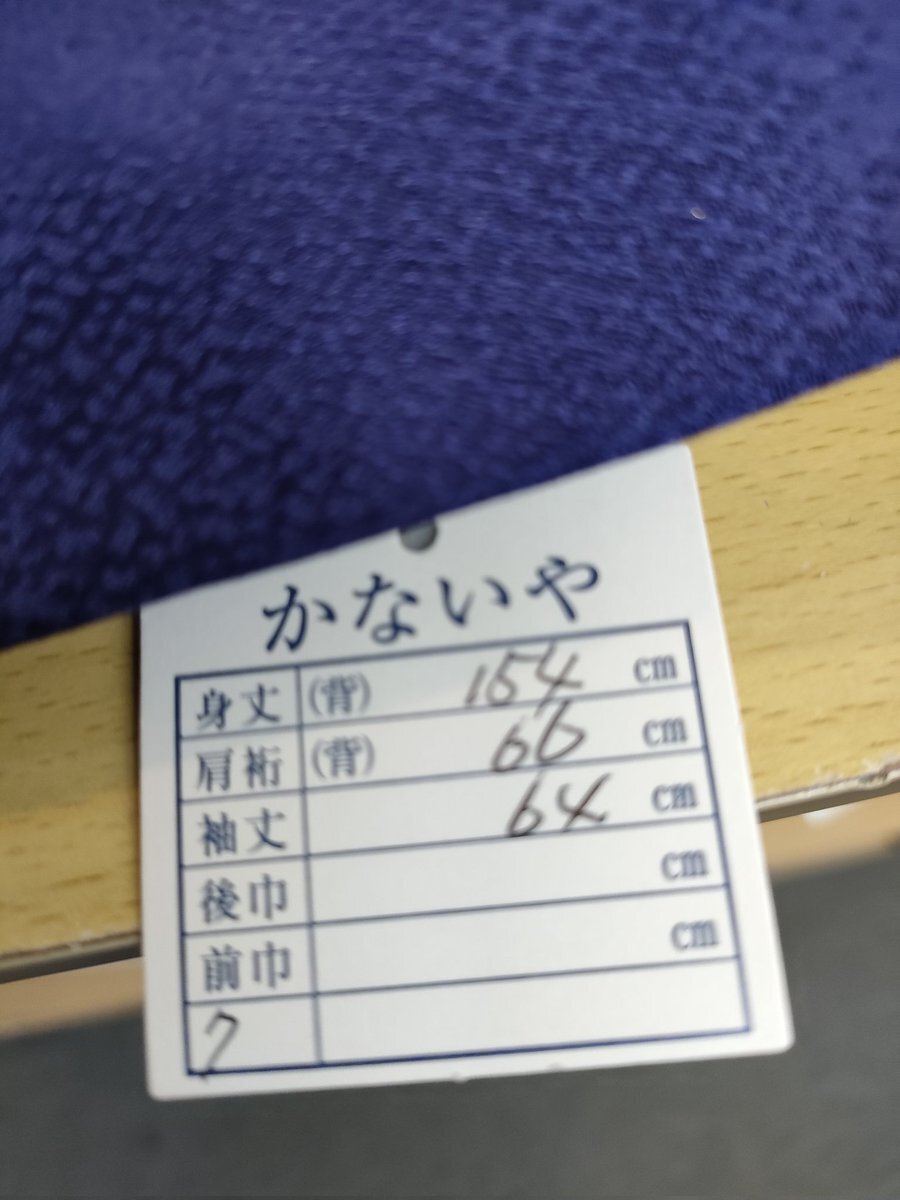 かないや
身丈 (背) 154 cm
肩裄 (背) 66 cm
袖丈 64 cm
後巾 cm
前巾 cm
7